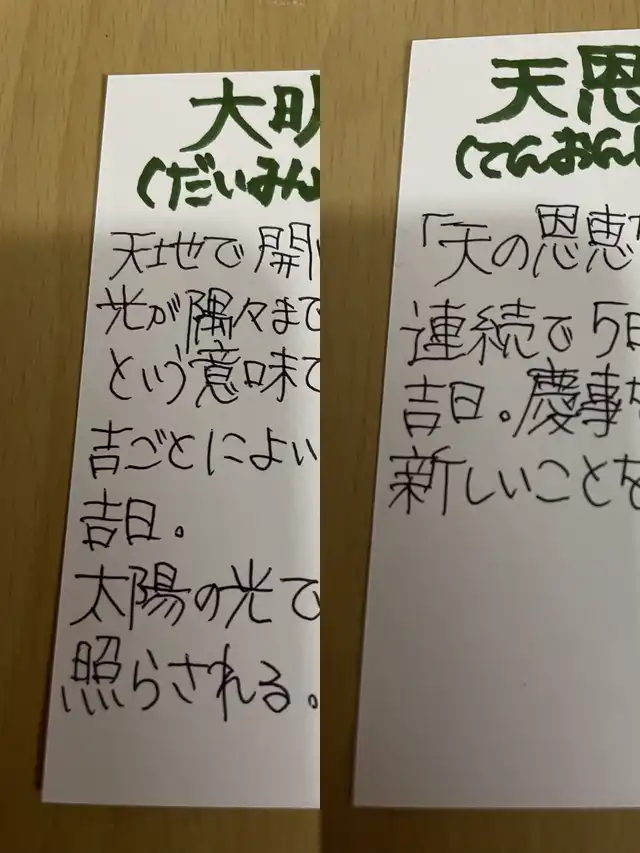 大明
(だいみん
天地で開
光が隅々まで
という意味で
吉ごとによい
吉日。
太陽の光で
照らされる。
天恩
(てんおん
「天の恩恵
連続で5日
吉日。慶事
新しいことを